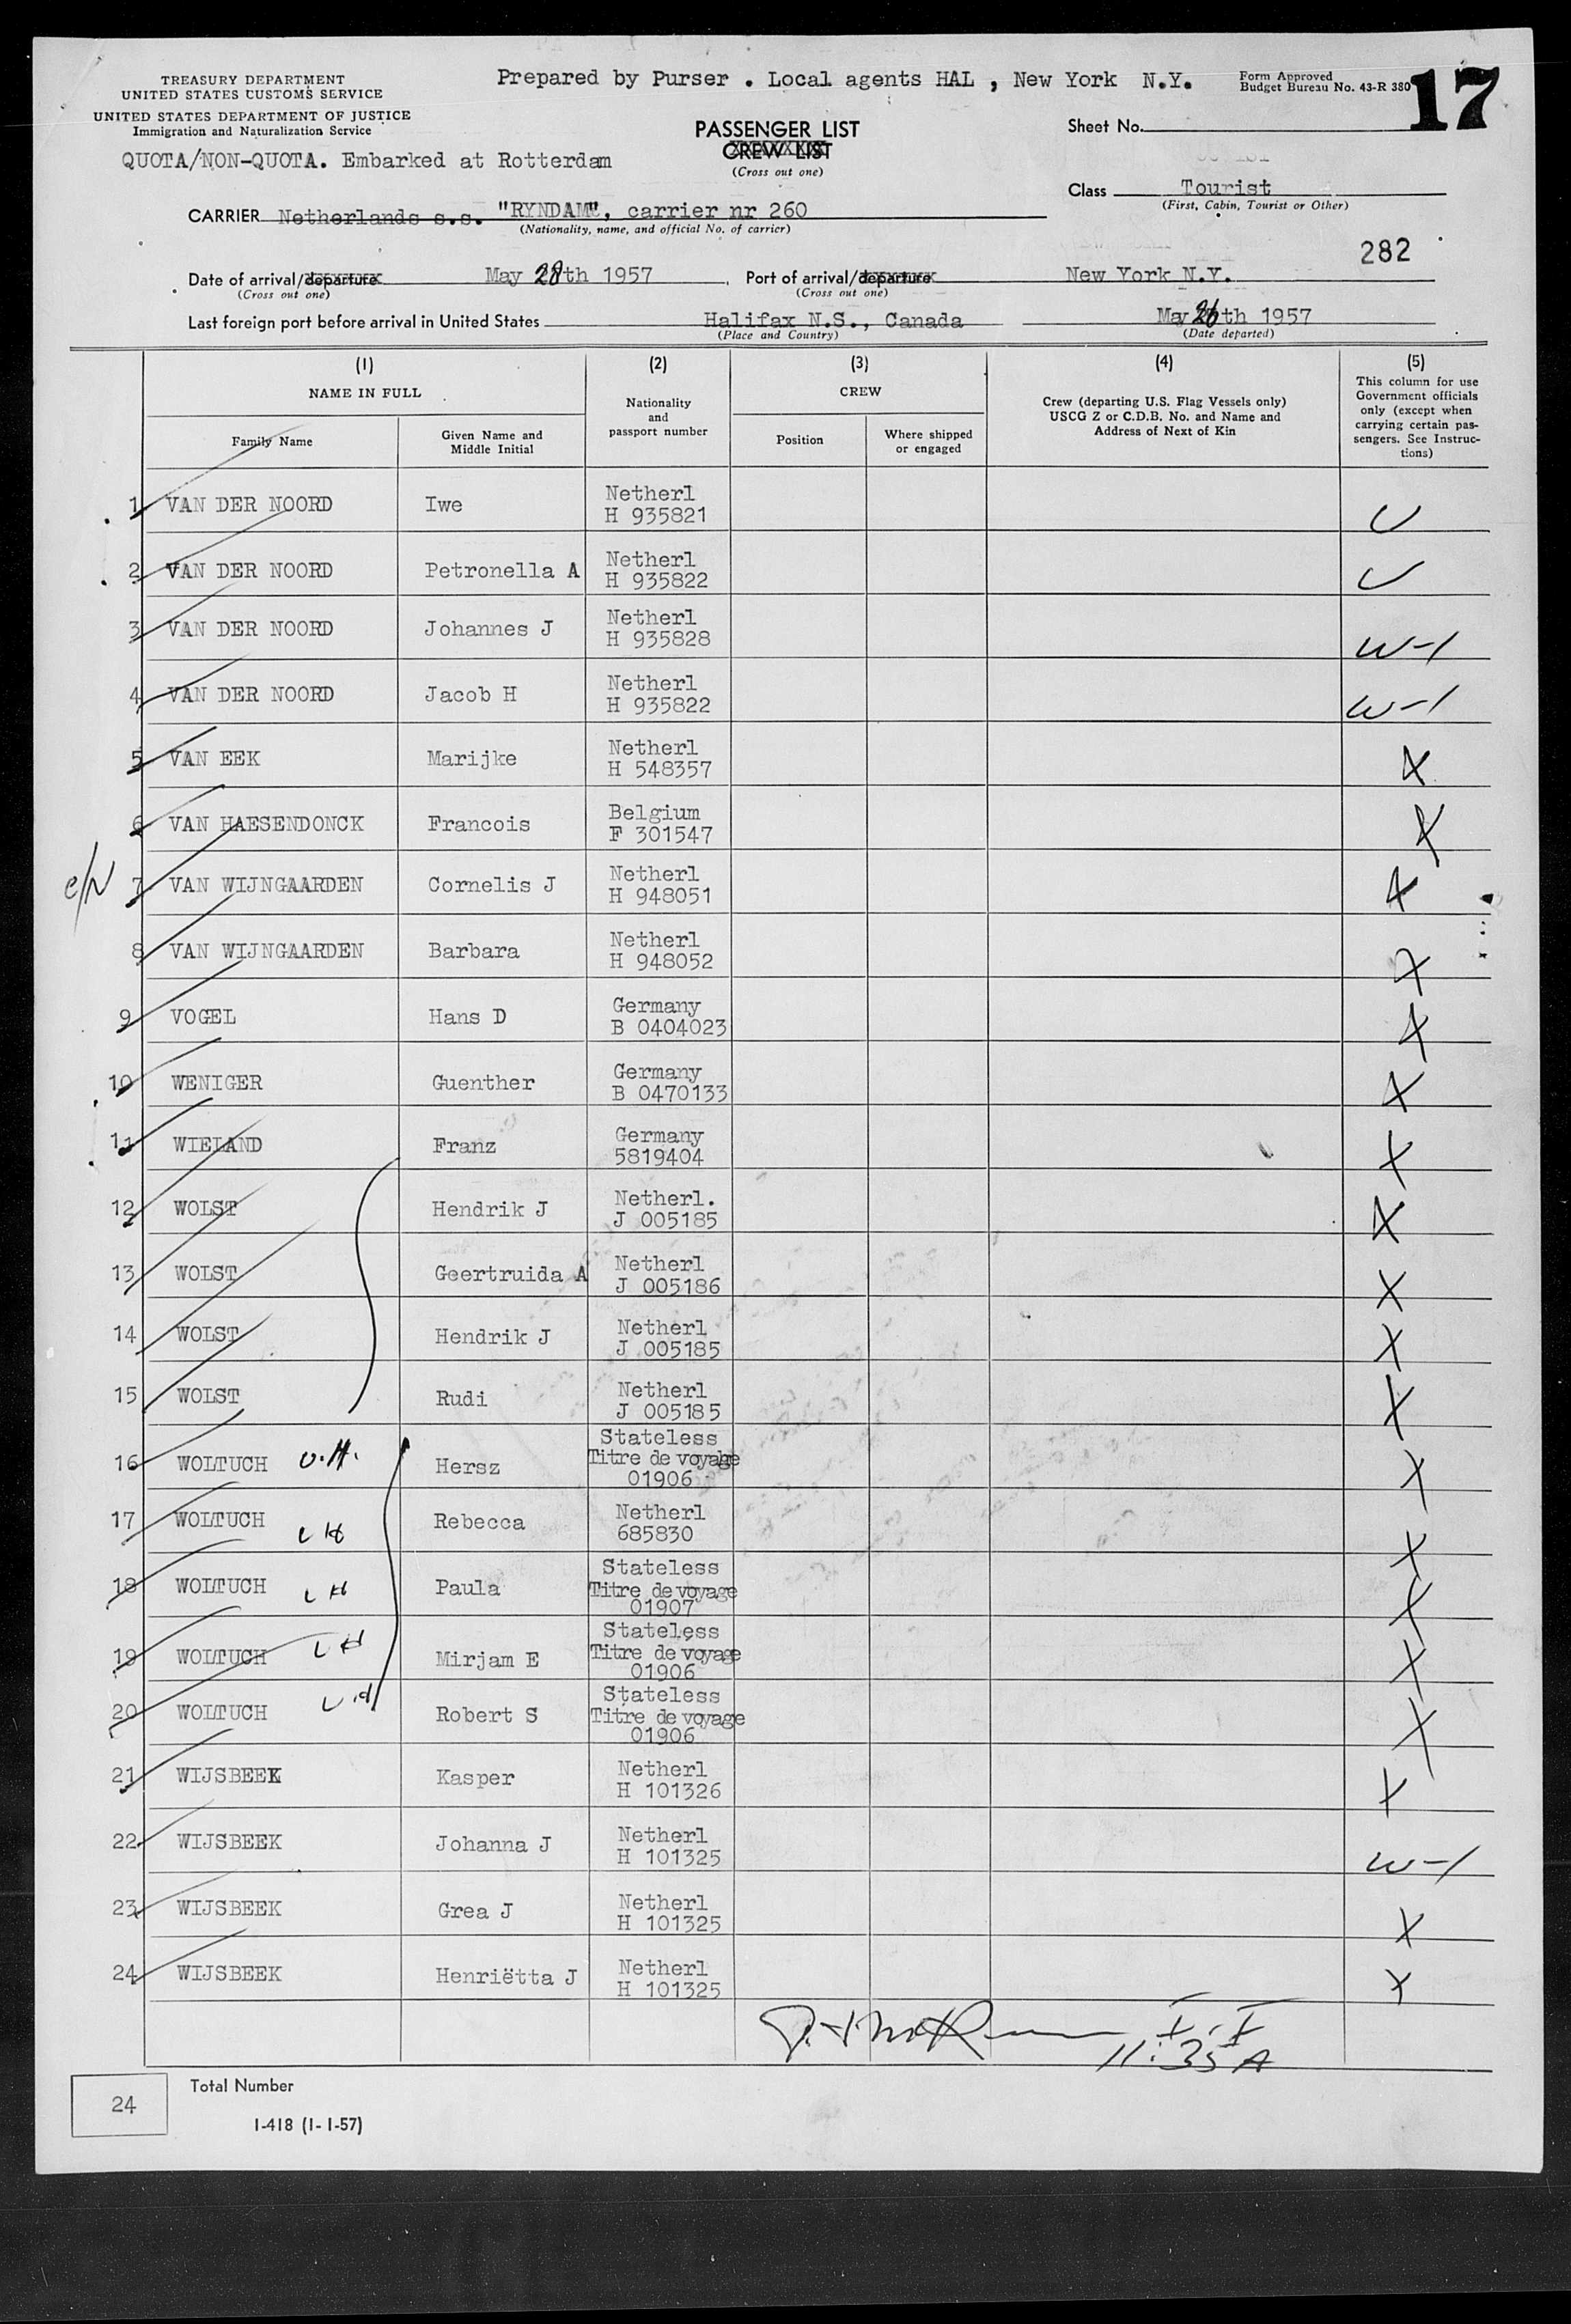 TREASURY DEPARTMENT
UNITED STATES CUSTOMS SERVICE
UNITED STATES DEPARTMENT OF JUSTICE
Immigration and Naturalization Service
QUOTA/NON-QUOTA. Embarked at Rotterdam
Prepared by Purser . Local agents HAL , New York N.Y.
Form Approved
Budget Bureau No. 43-R 380
17
PASSENGER LIST
CREW LIST
(Cross out one)
Sheet No.
Class Tourist
(First, Cabin, Tourist or Other)
CARRIER Netherlands s.s. "RYNDAM", carrier nr 260
(Nationality, name, and official No. of carrier)
282
Date of arrival/departure May 28th 1957 Port of arrival/departure New York N.Y.
(Cross out one) (Cross out one)
Last foreign port before arrival in United States Halifax N.S., Canada May 26th 1957
(Place and Country) (Date departed)
(1) (2) (3) (4) (5)
NAME IN FULL
Family Name
Given Name and
Middle Initial
Nationality
and
passport number
CREW
Position
Where shipped
or engaged
Crew (departing U.S. Flag Vessels only)
USCG Z or C.D.B. No. and Name and
Address of Next of Kin
This column for use
Government officials
only (except when
carrying certain pas-
sengers. See Instruc-
tions)
1 VAN DER NOORD Iwe Netherl
H 935821
2 VAN DER NOORD Petronella A Netherl
H 935822
3 VAN DER NOORD Johannes J Netherl
H 935828 W-1
4 VAN DER NOORD Jacob H Netherl
H 935822 W-1
5 VAN EEK Marijke Netherl
H 548357 X
6 VAN HAESENDONCK Francois Belgium
F 301547 X
c/N 7 VAN WIJNGAARDEN Cornelis J Netherl
H 948051 X
8 VAN WIJNGAARDEN Barbara Netherl
H 948052 X
9 VOGEL Hans D Germany
B 0404023 X
10 WENIGER Guenther Germany
B 0470133 X
11 WIELAND Franz Germany
5819404 X
12 WOLST Hendrik J Netherl.
J 005185 X
13 WOLST Geertruida A Netherl
J 005186 X
14 WOLST Hendrik J Netherl
J 005185 X
15 WOLST Rudi Netherl
J 005185 X
16 WOLTUCH Hersz Stateless
Titre de voyage
01906 X
17 WOLTUCH Rebecca Netherl
685830 X
18 WOLTUCH Paula Stateless
Titre de voyage
01907 X
19 WOLTUCH Mirjam E Stateless
Titre de voyage
01906 X
20 WOLTUCH Robert S Stateless
Titre de voyage
01906 X
21 WIJSBEEK Kasper Netherl
H 101326 X
22 WIJSBEEK Johanna J Netherl
H 101325 W-1
23 WIJSBEEK Grea J Netherl
H 101325 X
24 WIJSBEEK Henriëtta J Netherl
H 101325 X
11:35 A
24
Total Number
I-418 (1-1-57)